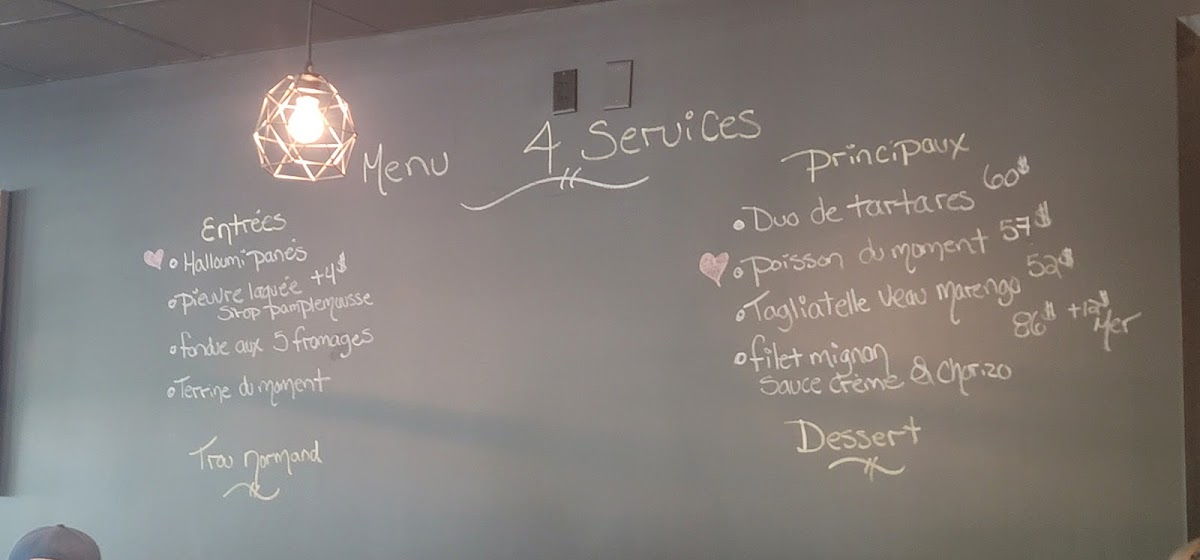 Menu 4 Services
Entrées
Halloumi panés
pieuvre laquée +4$
Sirop pamplemousse
fondue aux 5 fromages
Terrine du moment
Trou normand
Principaux
Duo de tartares 60$
poisson du moment 57$
Tagliatelle veau marengo 52$
filet mignon 86$ +12$ Mer
Sauce crème & Chorizo
Dessert